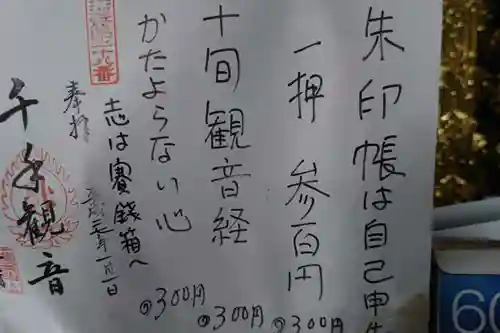 朱印帳は自己申
一押 参百円
◎300円
十旬観音経
◎300円
かたよらない心
◎300円
志は賽銭箱へ
年一月一日
奉拝
千手観音
60